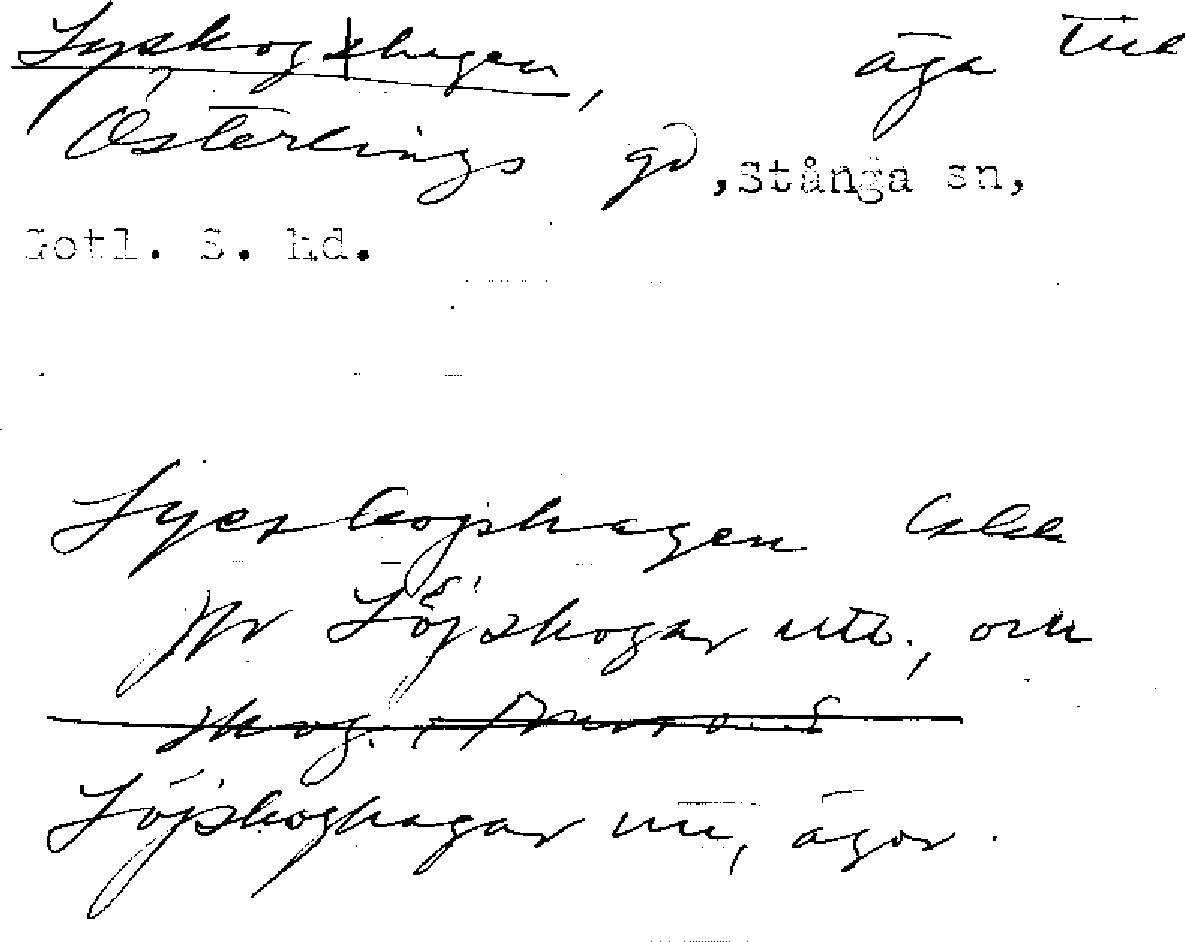 Lyskogshagen, äga till
Österlings gd, Stånga sn,
Gotl. S. hd.
Lyerskogshagen Cskk
jfr Löjskogar utr., och
skog.
Löjskoghagar nu, ägor.